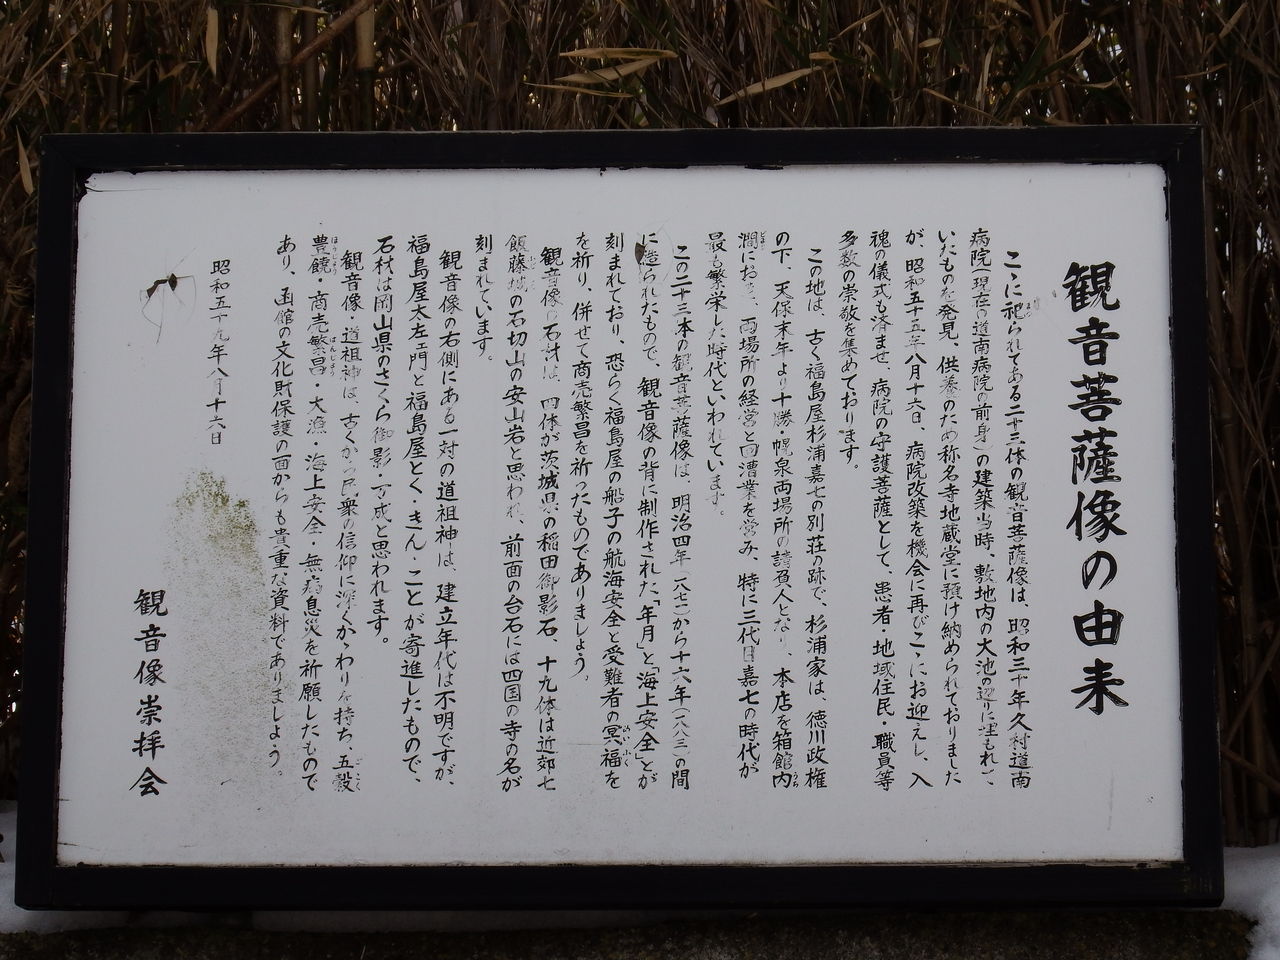 観音菩薩像の由来
こゝに祀られてある二十三体の観音菩薩像は、昭和三十年久村道南
病院(現在の道南病院の前身)の建築当時、敷地内の大池の辺りに埋もれて
いたものを発見、供養のため称名寺地蔵堂に預け納められておりました
が、昭和五十五年八月十六日、病院改築を機会に再びこゝにお迎えし、入
魂の儀式も済ませ、病院の守護菩薩として、患者・地域住民・職員等
多数の崇敬を集めております。
この地は、古く福島屋杉浦嘉七の別荘の跡で、杉浦家は、徳川政権
の下、天保末年より十勝・幌泉両場所の請負人となり、本店を箱館内
澗におき、両場所の経営と回漕業を営み、特に三代目嘉七の時代が
最も繁栄した時代といわれています。
この二十三体の観音菩薩像は、明治四年(一八七一)から十六年(一八八三)の間
に造られたもので、観音像の背に制作された「年月」と「海上安全」とが
刻まれており、恐らく福島屋の船子の航海安全と受難者の冥福を
を祈り、併せて商売繁昌を祈ったものでありましょう。
観音像の石材は、四体が茨城県の稲田御影石、十九体は近郊七
飯藤城の石切山の安山岩と思われ、前面の台石には四国の寺の名が
刻まれています。
観音像の右側にある一対の道祖神は、建立年代は不明ですが、
福島屋太左ェ門と福島屋とく・きん・ことが寄進したもので、
石材は岡山県のさくら御影・万成と思われます。
観音像、道祖神は、古くから民衆の信仰に深くかゝわりを持ち、五穀
豊饒・商売繁昌・大漁・海上安全・無病息災を祈願したもので
あり、函館の文化財保護の面からも貴重な資料でありましょう。
昭和五十九年八月十六日
観音像崇拝会